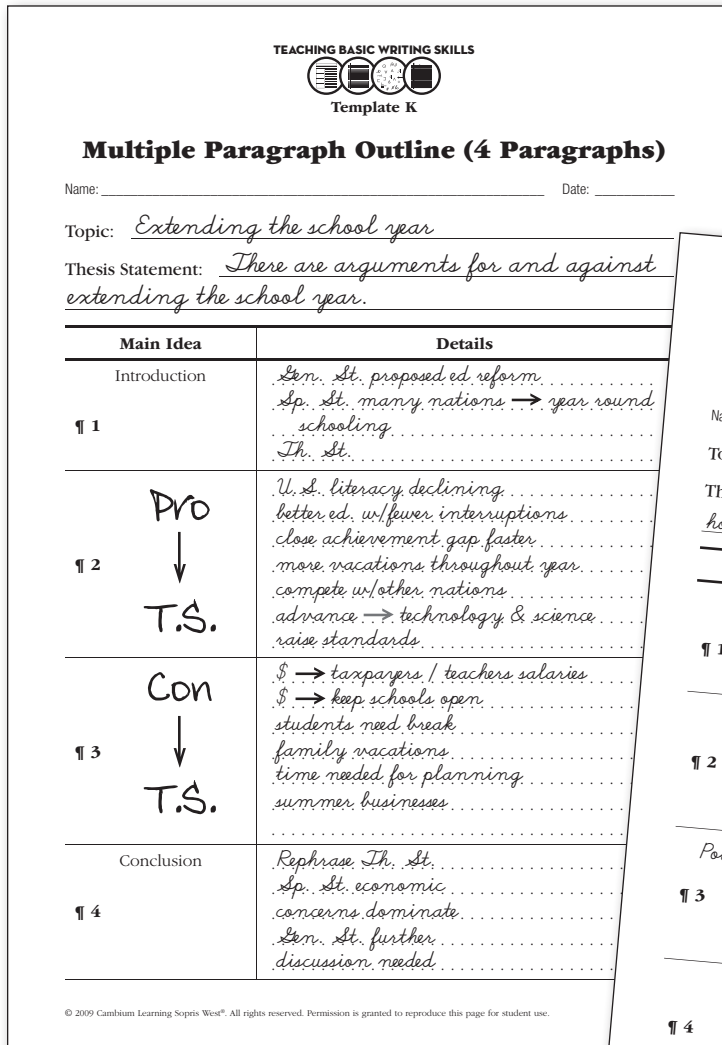 TEACHING BASIC WRITING SKILLS
Template K
Multiple Paragraph Outline (4 Paragraphs)
Name: Date:
Topic: Extending the school year
Thesis Statement: There are arguments for and against
extending the school year.
Main Idea Details
Introduction
¶ 1
Gen. St. proposed ed reform
Sp. St. many nations → year round
schooling
Th. St.
Pro
↓
T.S.
¶ 2
U.S. literacy declining
better ed. w/fewer interruptions
close achievement gap faster
more vacations throughout year
compete w/other nations
advance → technology & science
raise standards
Con
↓
T.S.
¶ 3
$ → taxpayers / teachers salaries
$ → keep schools open
students need break
family vacations
time needed for planning
summer businesses
Conclusion
¶ 4
Rephrase Th. St.
Sp. St. economic
concerns dominate
Gen. St. further
discussion needed
© 2009 Cambium Learning Sopris West®. All rights reserved. Permission is granted to reproduce this page for student use.
¶ 2
¶ 3
¶ 4